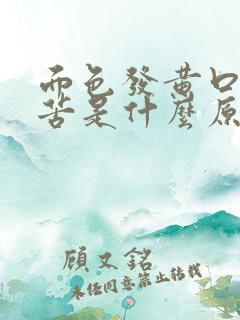 面色發黃口
苦是什麼原
顧又銘
未經同意禁止轉載